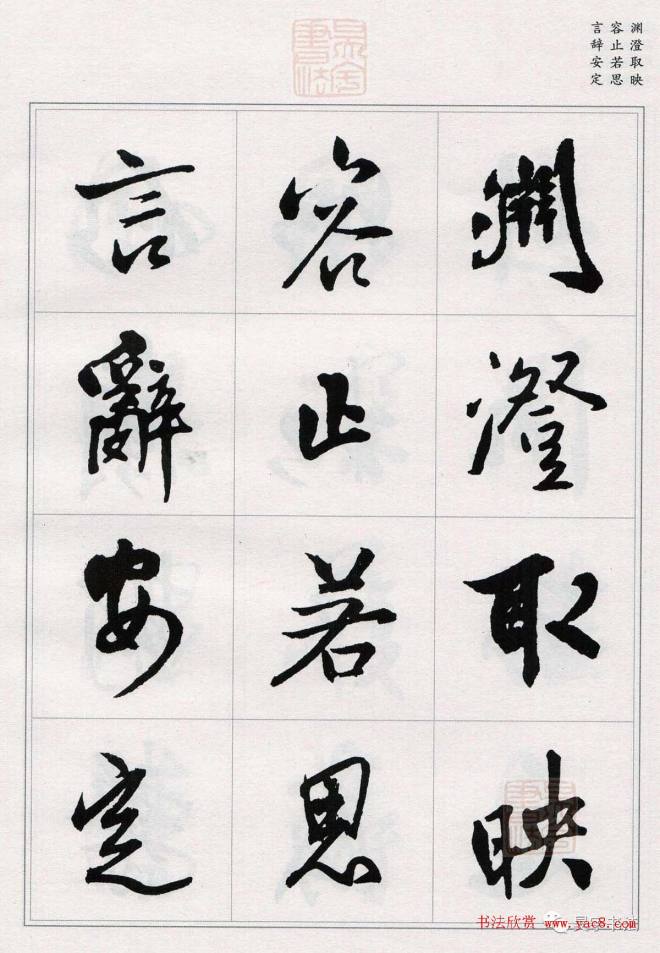 渊澄取映
容止若思
言辞安定
淵澄取映
容止若思
言辭安定
书法欣赏 www.yac8.com